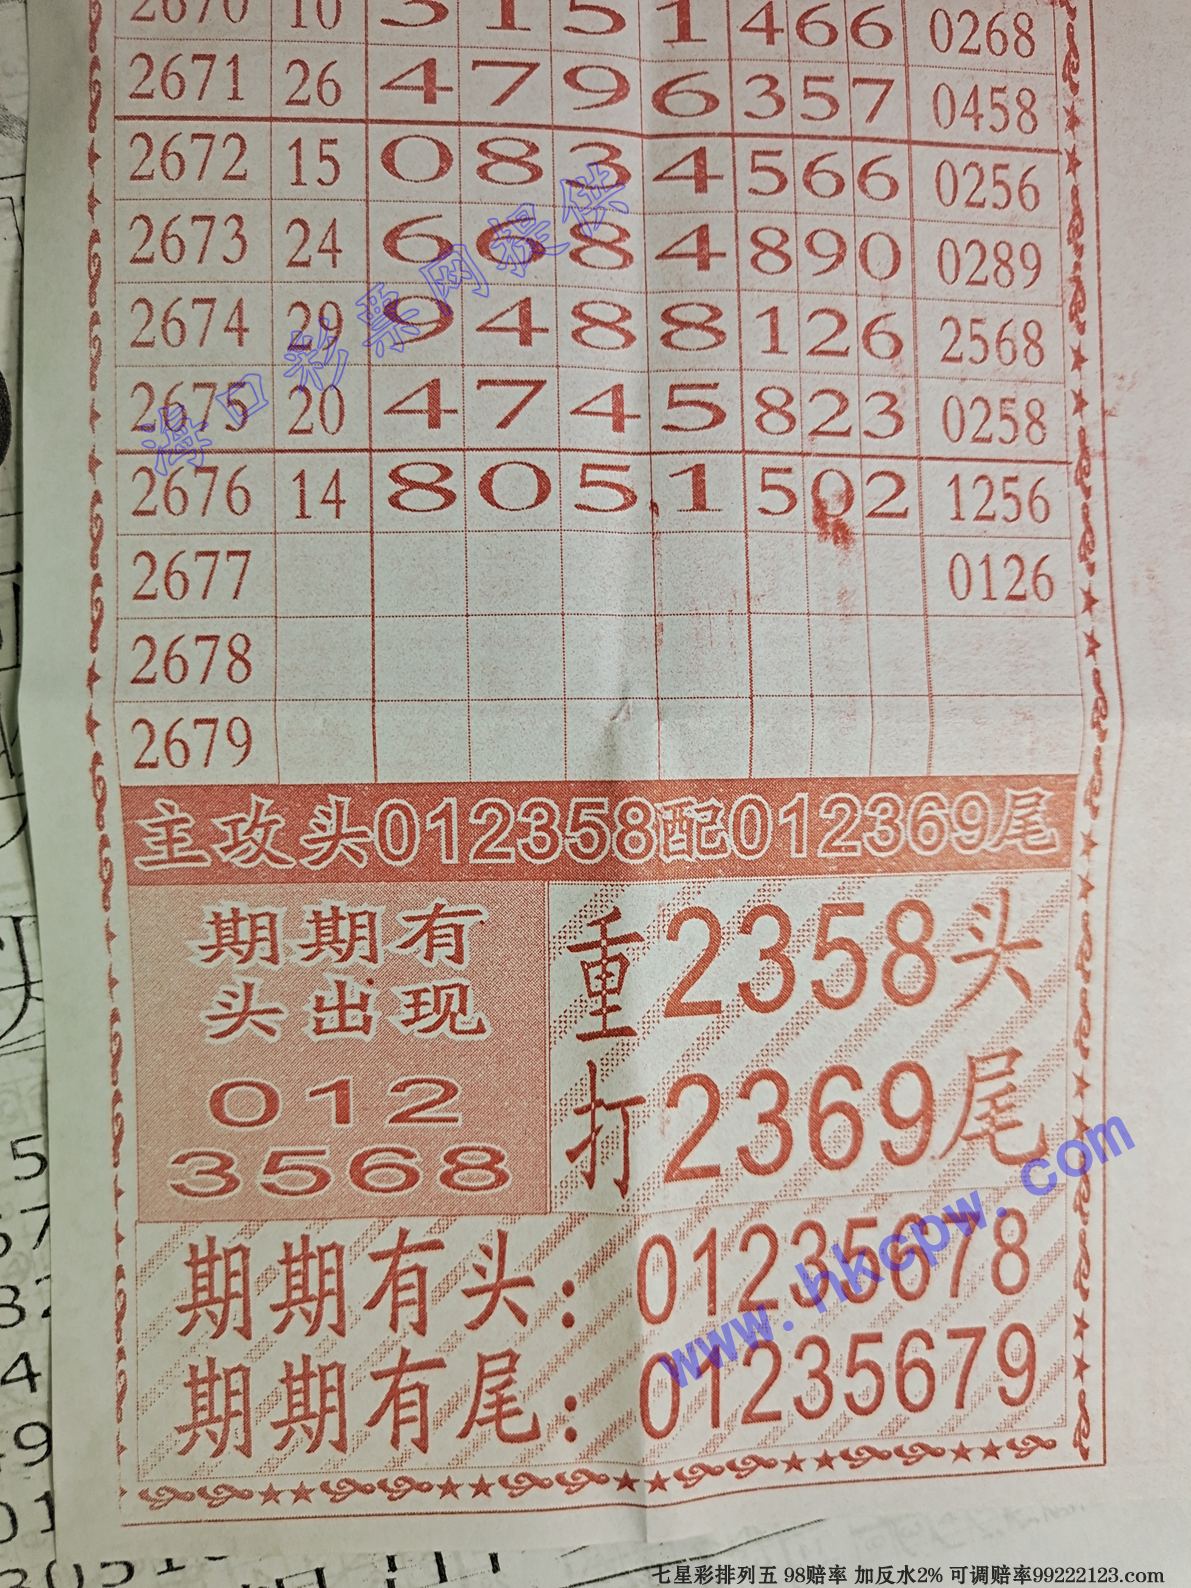 2670 10 3 1 5 1 4 6 6 0268
2671 26 4 7 9 6 3 5 7 0458
2672 15 0 8 3 4 5 6 6 0256
2673 24 6 6 8 4 8 9 0 0289
2674 29 9 4 8 8 1 2 6 2568
2675 20 4 7 4 5 8 2 3 0258
2676 14 8 0 5 1 5 0 2 1256
2677 0126
2678
2679
海口彩票网提供
主攻头012358配012369尾
期期有
头出现
012
3568
重打
2358头
2369尾
期期有头：01235678
期期有尾：01235679
www.hkcpw.com
七星彩排列五 98赔率 加反水2% 可调赔率99222123.com